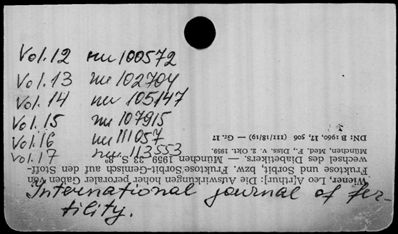 Vol.12 nu 100572
Vol.13 nu 102704
Vol.14 nu 105147
Vol.15 nu 107915
Vol.16 nu 111057
Vol.17 nu 113553
International journal of fer-
tility.
Wiener, Leo A[rthur]: Die Auswirkungen hoher peroraler Gaben von
Fruktose und Sorbit, bzw. Fruktose-Sorbit-Gemisch auf den Stoff-
wechsel des Diabetikers. — München 1959. 33 S. 8°
München, Med. F., Diss. v. 2. Okt. 1959.
DN: B 1960, 17, 506 (III/18/19) — Gr. 17